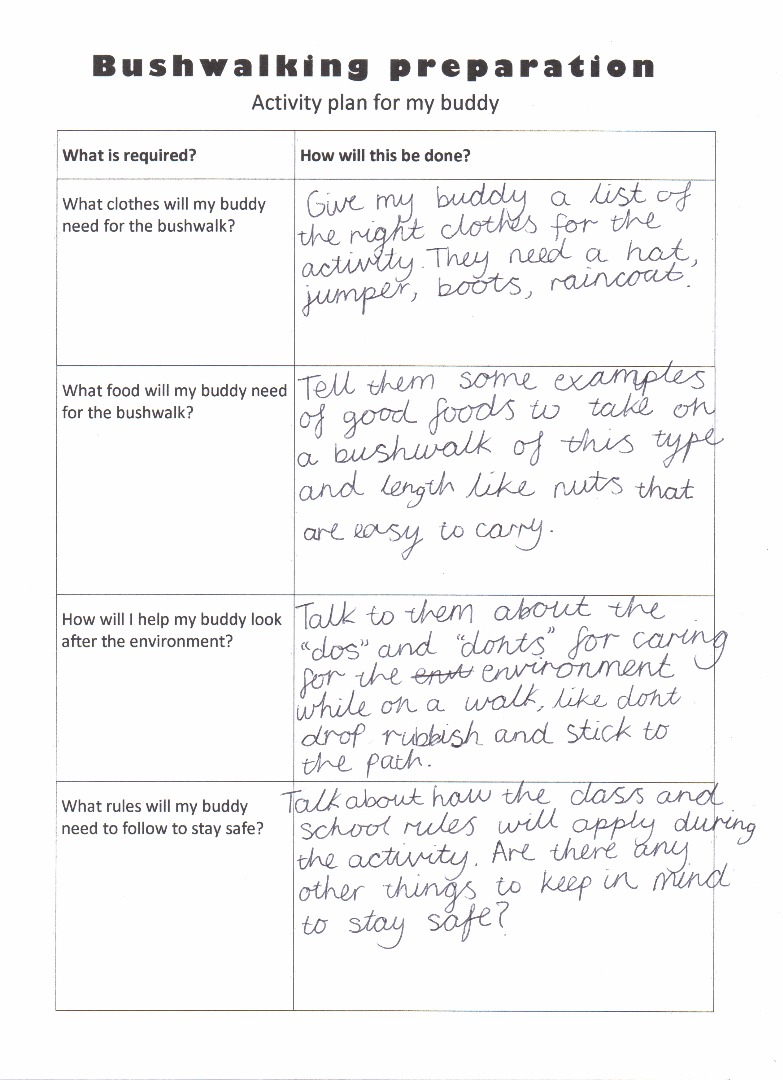 Bushwalking preparation
Activity plan for my buddy
What is required?
How will this be done?
What clothes will my buddy
need for the bushwalk?
Give my buddy a list of
the right clothes for the
activity. They need a hat,
jumper, boots, raincoat.
What food will my buddy need
for the bushwalk?
Tell them some examples
of good foods to take on
a bushwalk of this type
and length like nuts that
are easy to carry.
How will I help my buddy look
after the environment?
Talk to them about the
“dos” and “donts” for caring
for the env environment
while on a walk, like dont
drop rubbish and stick to
the path.
What rules will my buddy
need to follow to stay safe?
Talk about how the class and
school rules will apply during
the activity. Are there any
other things to keep in mind
to stay safe?